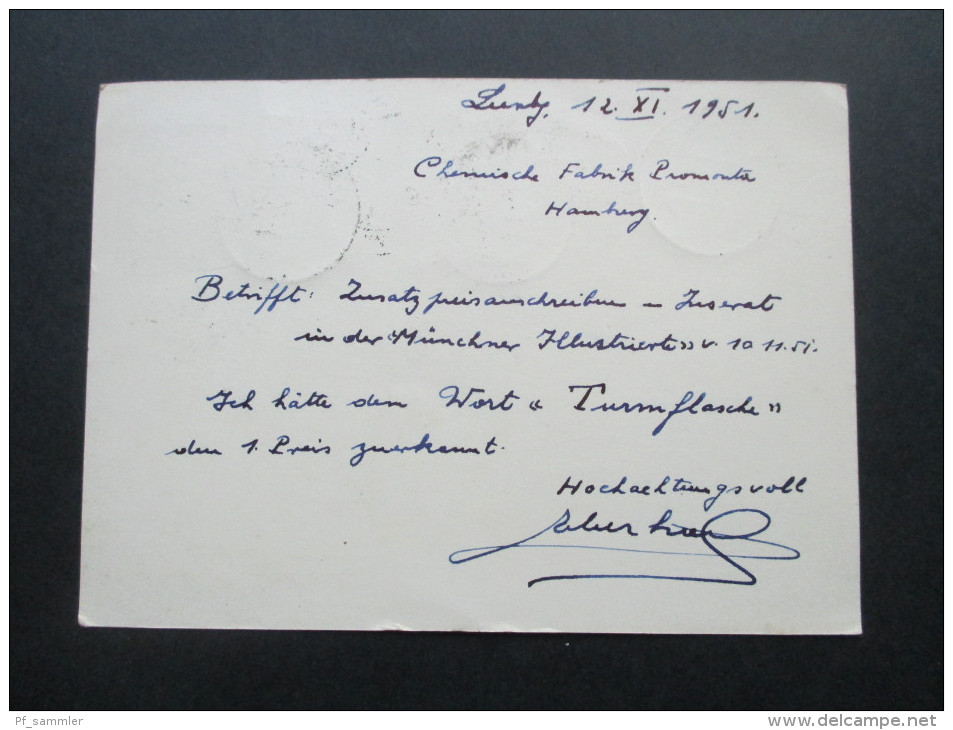 12. XI. 1951.
Chemische Fabrik Promonta
Hamburg.
Betrifft: Zusatzpreisausschreiben - Inserat
in der «Münchner Illustrierte» v. 10.11.51.
Ich hätte dem Wort « Turmflasche»
den 1. Preis zuerkannt.
Hochachtungsvoll
Pf_sammler
www.delcampe.net